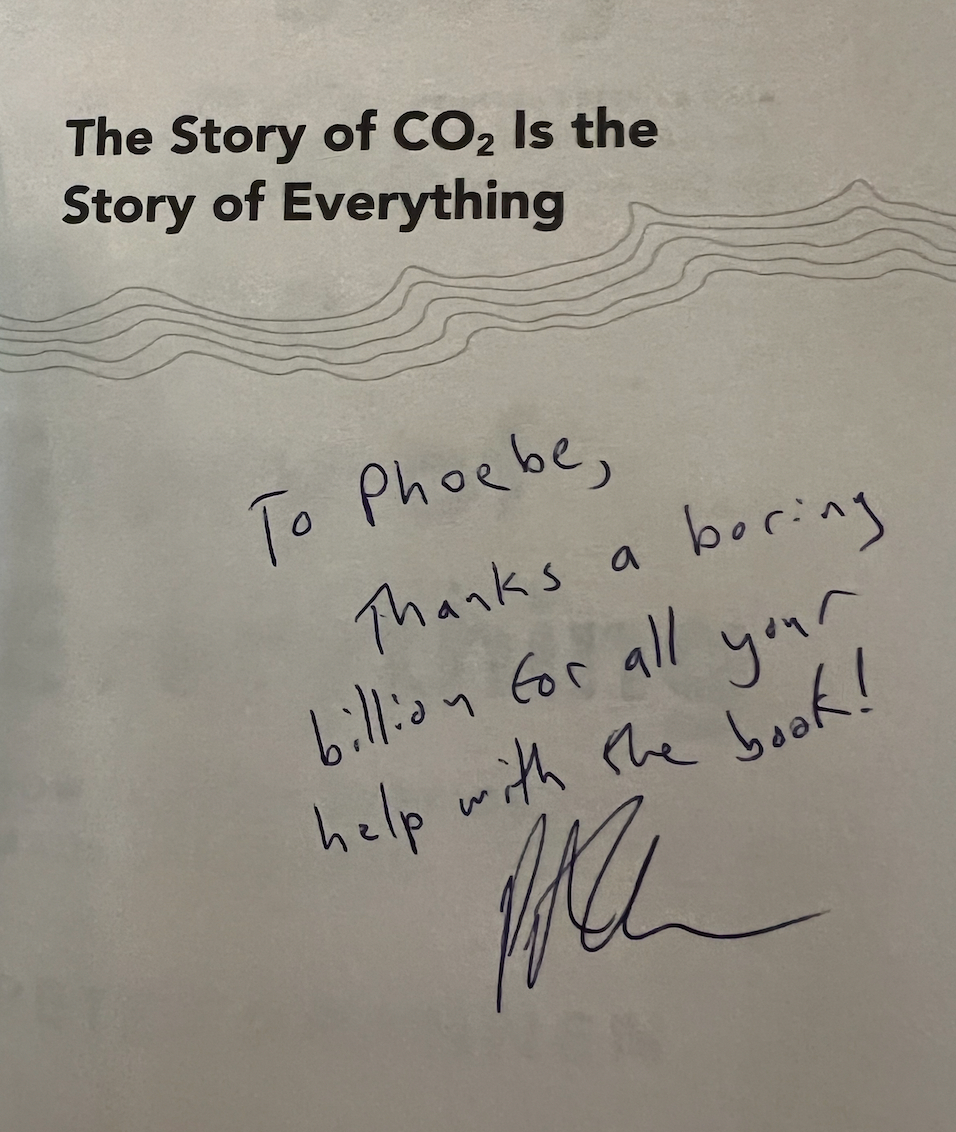 The Story of CO₂ Is the
Story of Everything
To Phoebe,
Thanks a boring
billion for all your
help with the book!